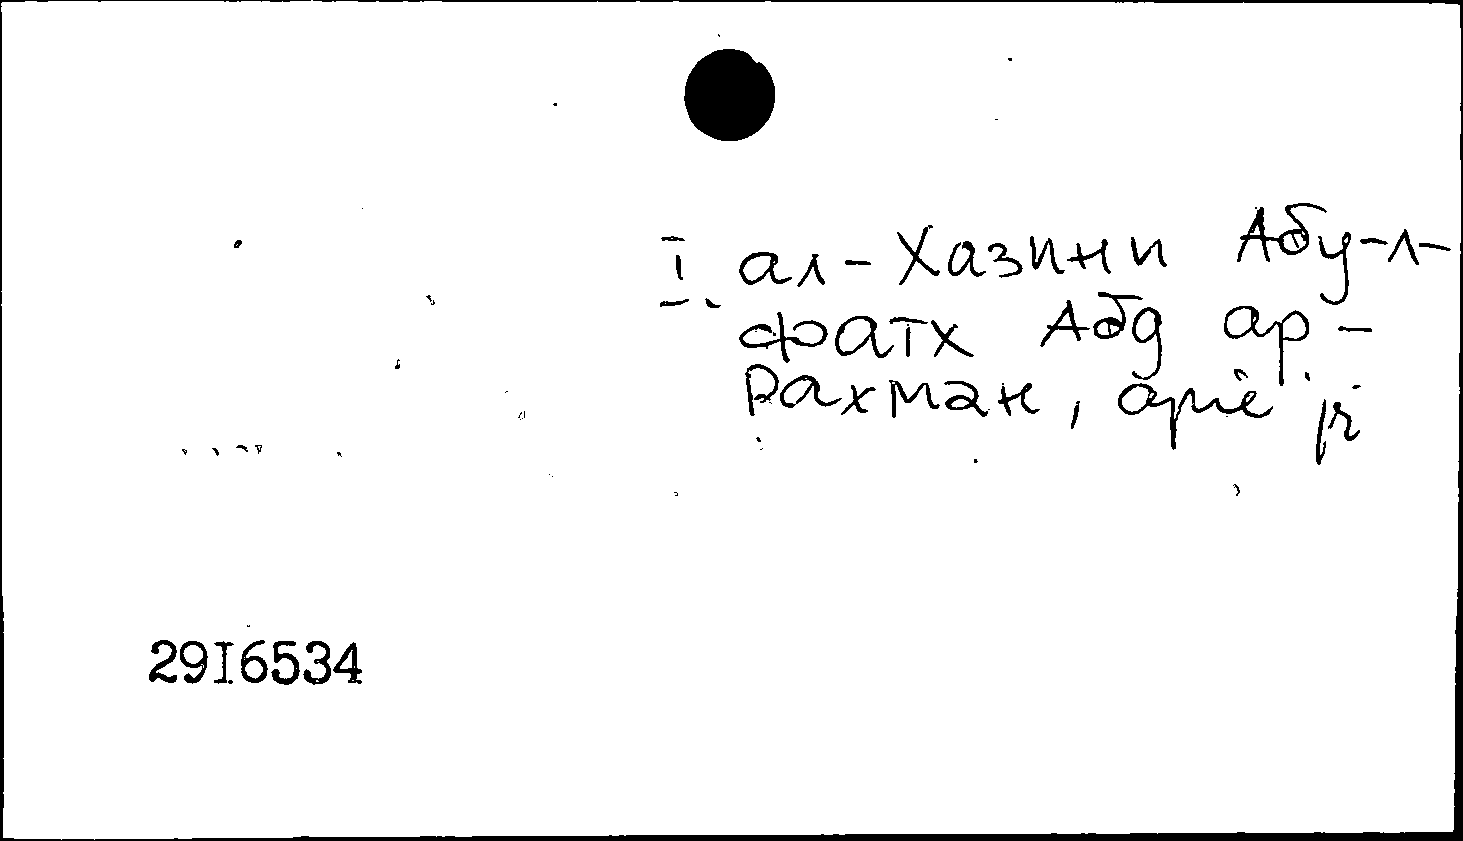 I. ал-Хазини Абу-л-
фатх Абд ар-
Рахман,
29I6534